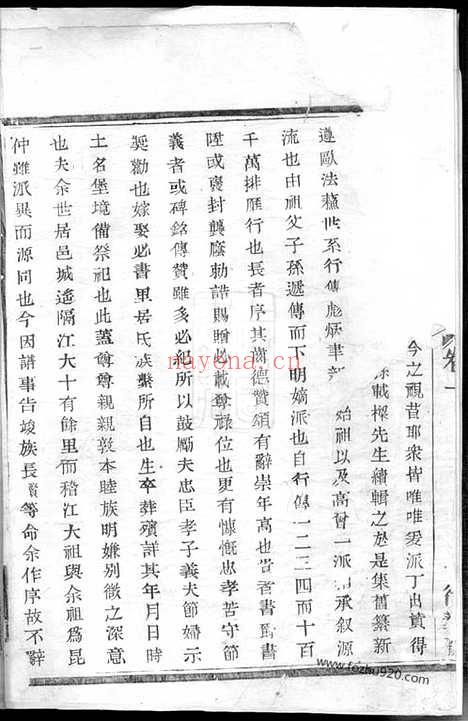 今之視昔耶眾皆唯唯爰派丁出貲得
載樑先生續輯之於是集舊纂新
卷一
遵歐法蘇世系行傳彪炳聿新 始祖以及高曾一派相承叙源
流也由祖父子孫遞傳而下明嫡派也自行傳一二三四而十百
千萬排雁行也長者序其齒德贊頌有辭崇年高也貴者書爵書
陞或寵封襲廕勅誥賜贈必載尊祿位也更有慷慨忠孝苦守節
義者或碑銘傳贊雖多必紀所以鼓勵夫忠臣孝子義夫節婦示
奬勸也嫁娶必書里居氏族繫所自也生卒葬殯詳其年月日時
土名堡境備祭祀也此蓋尊尊親親敦本睦族明嫌别微之深意
也夫余世居邑城遙隔江大十有餘里而稽江大祖與余祖爲昆
仲雖派異而源同也今因譜事告竣族長賢等命余作序故不辭
nayona.cn
www.fozhu920.com